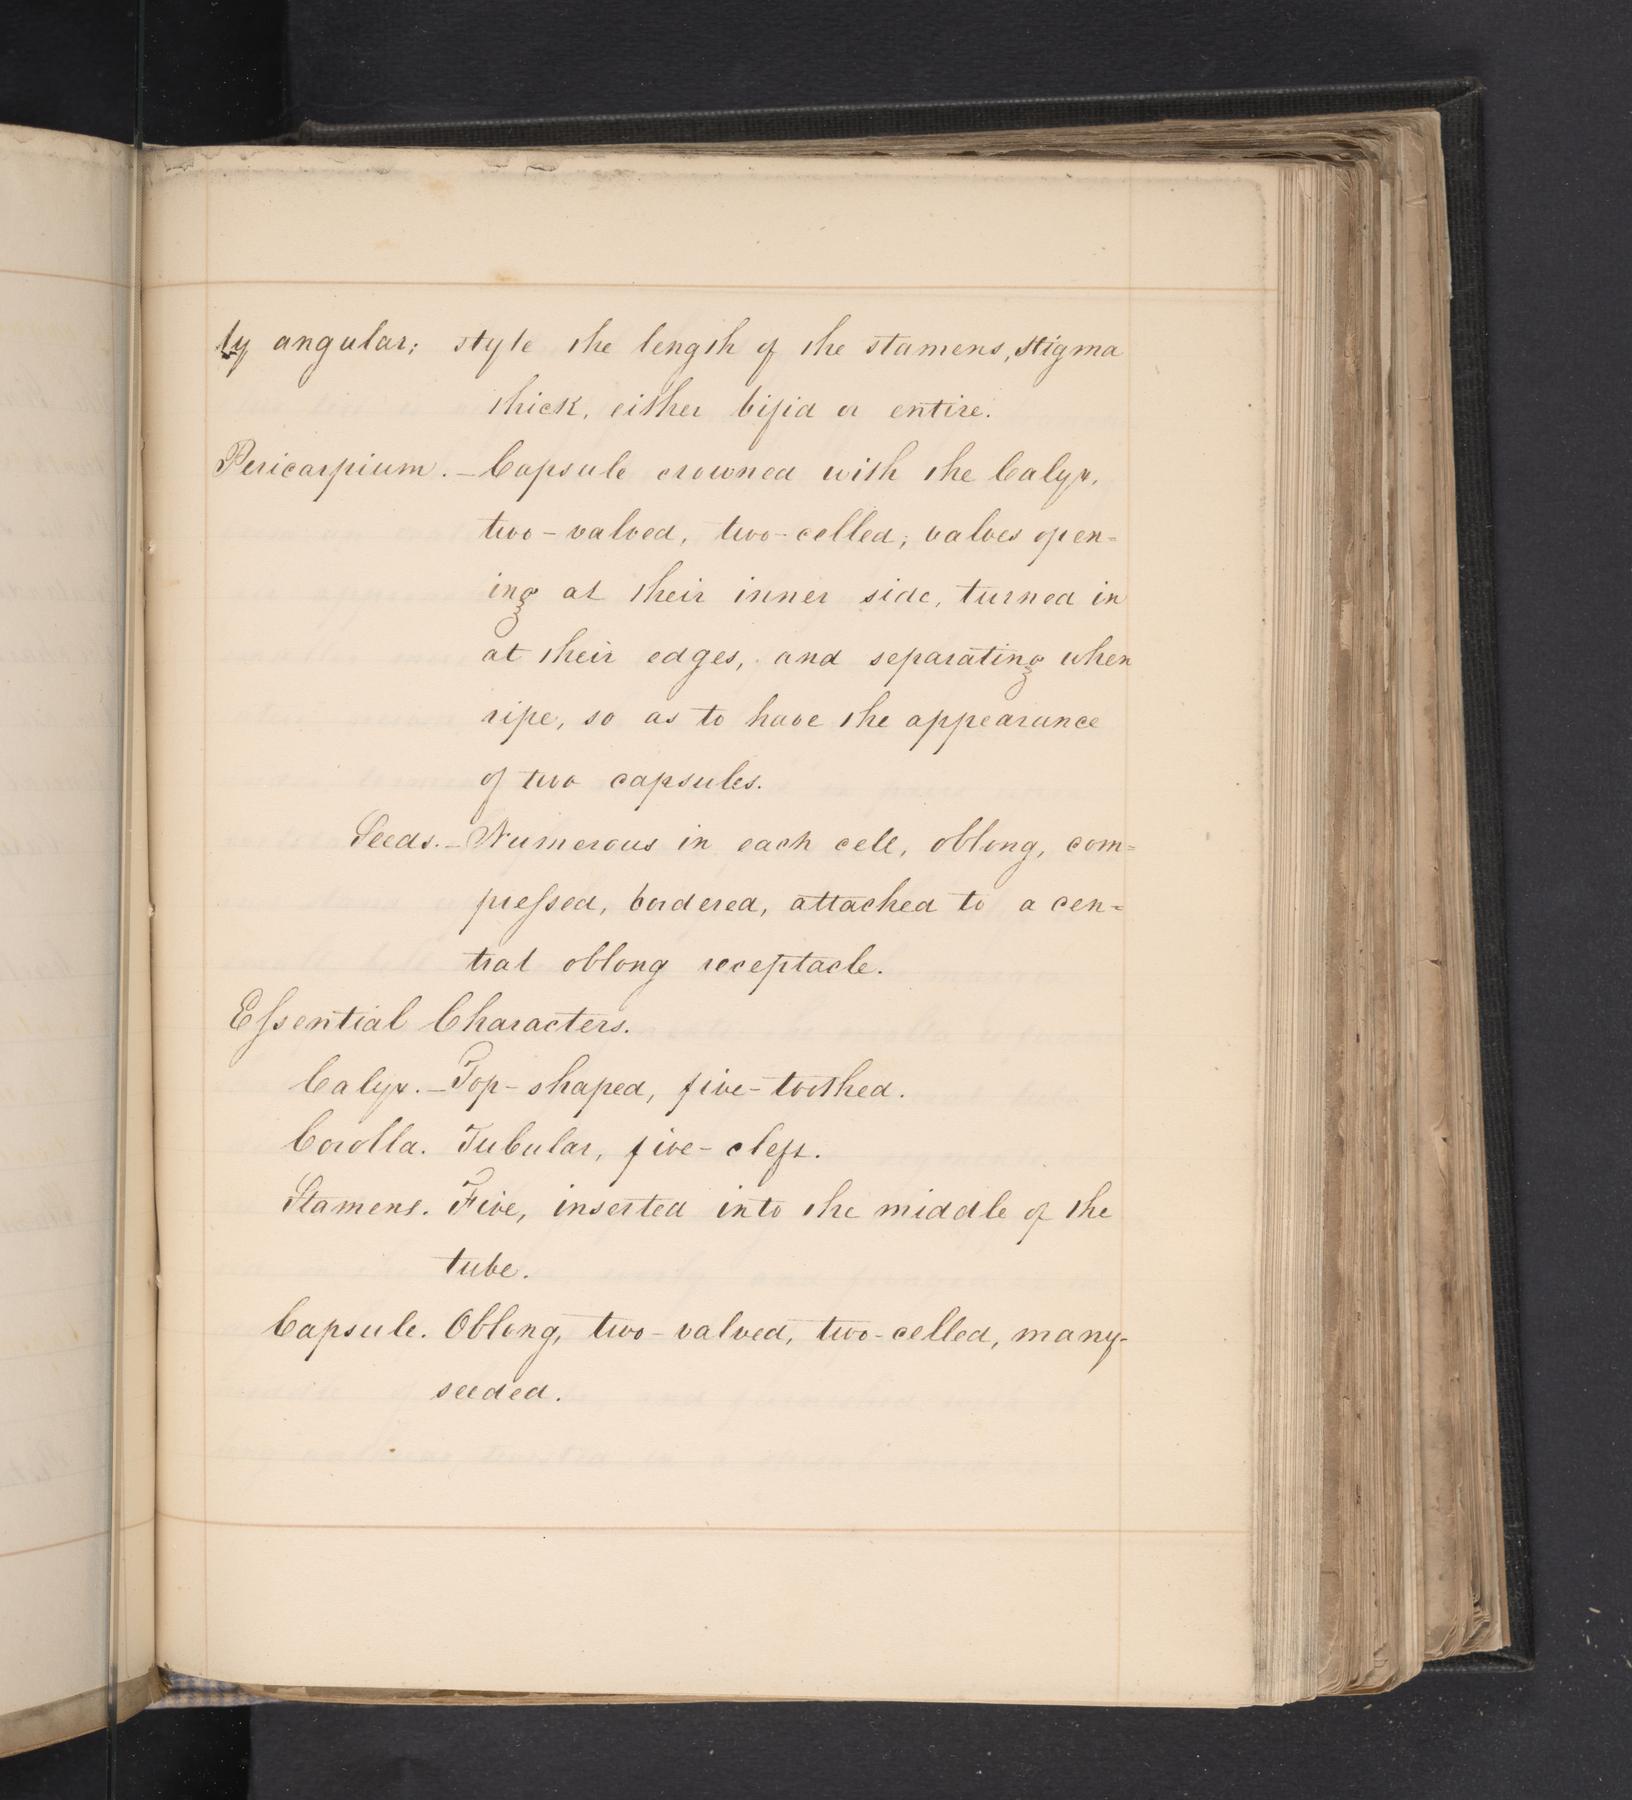 ly angular; style the length of the stamens, stigma
thick, either bifid or entire.
Pericarpium. — Capsule crowned with the Calyx,
two-valved, two-celled; valves open=
ing at their inner side, turned in
at their edges, and separating when
ripe, so as to have the appearance
of two capsules.
Seeds. — Numerous in each cell, oblong, com=
preſsed, bordered, attached to a cen=
tral oblong receptacle.
Eſsential Characters.
Calyx. — Top-shaped, five-toothed.
Corolla. Tubular, five-cleft.
Stamens. Five, inserted into the middle of the
tube.
Capsule. Oblong, two-valved, two-celled, many-
seeded.